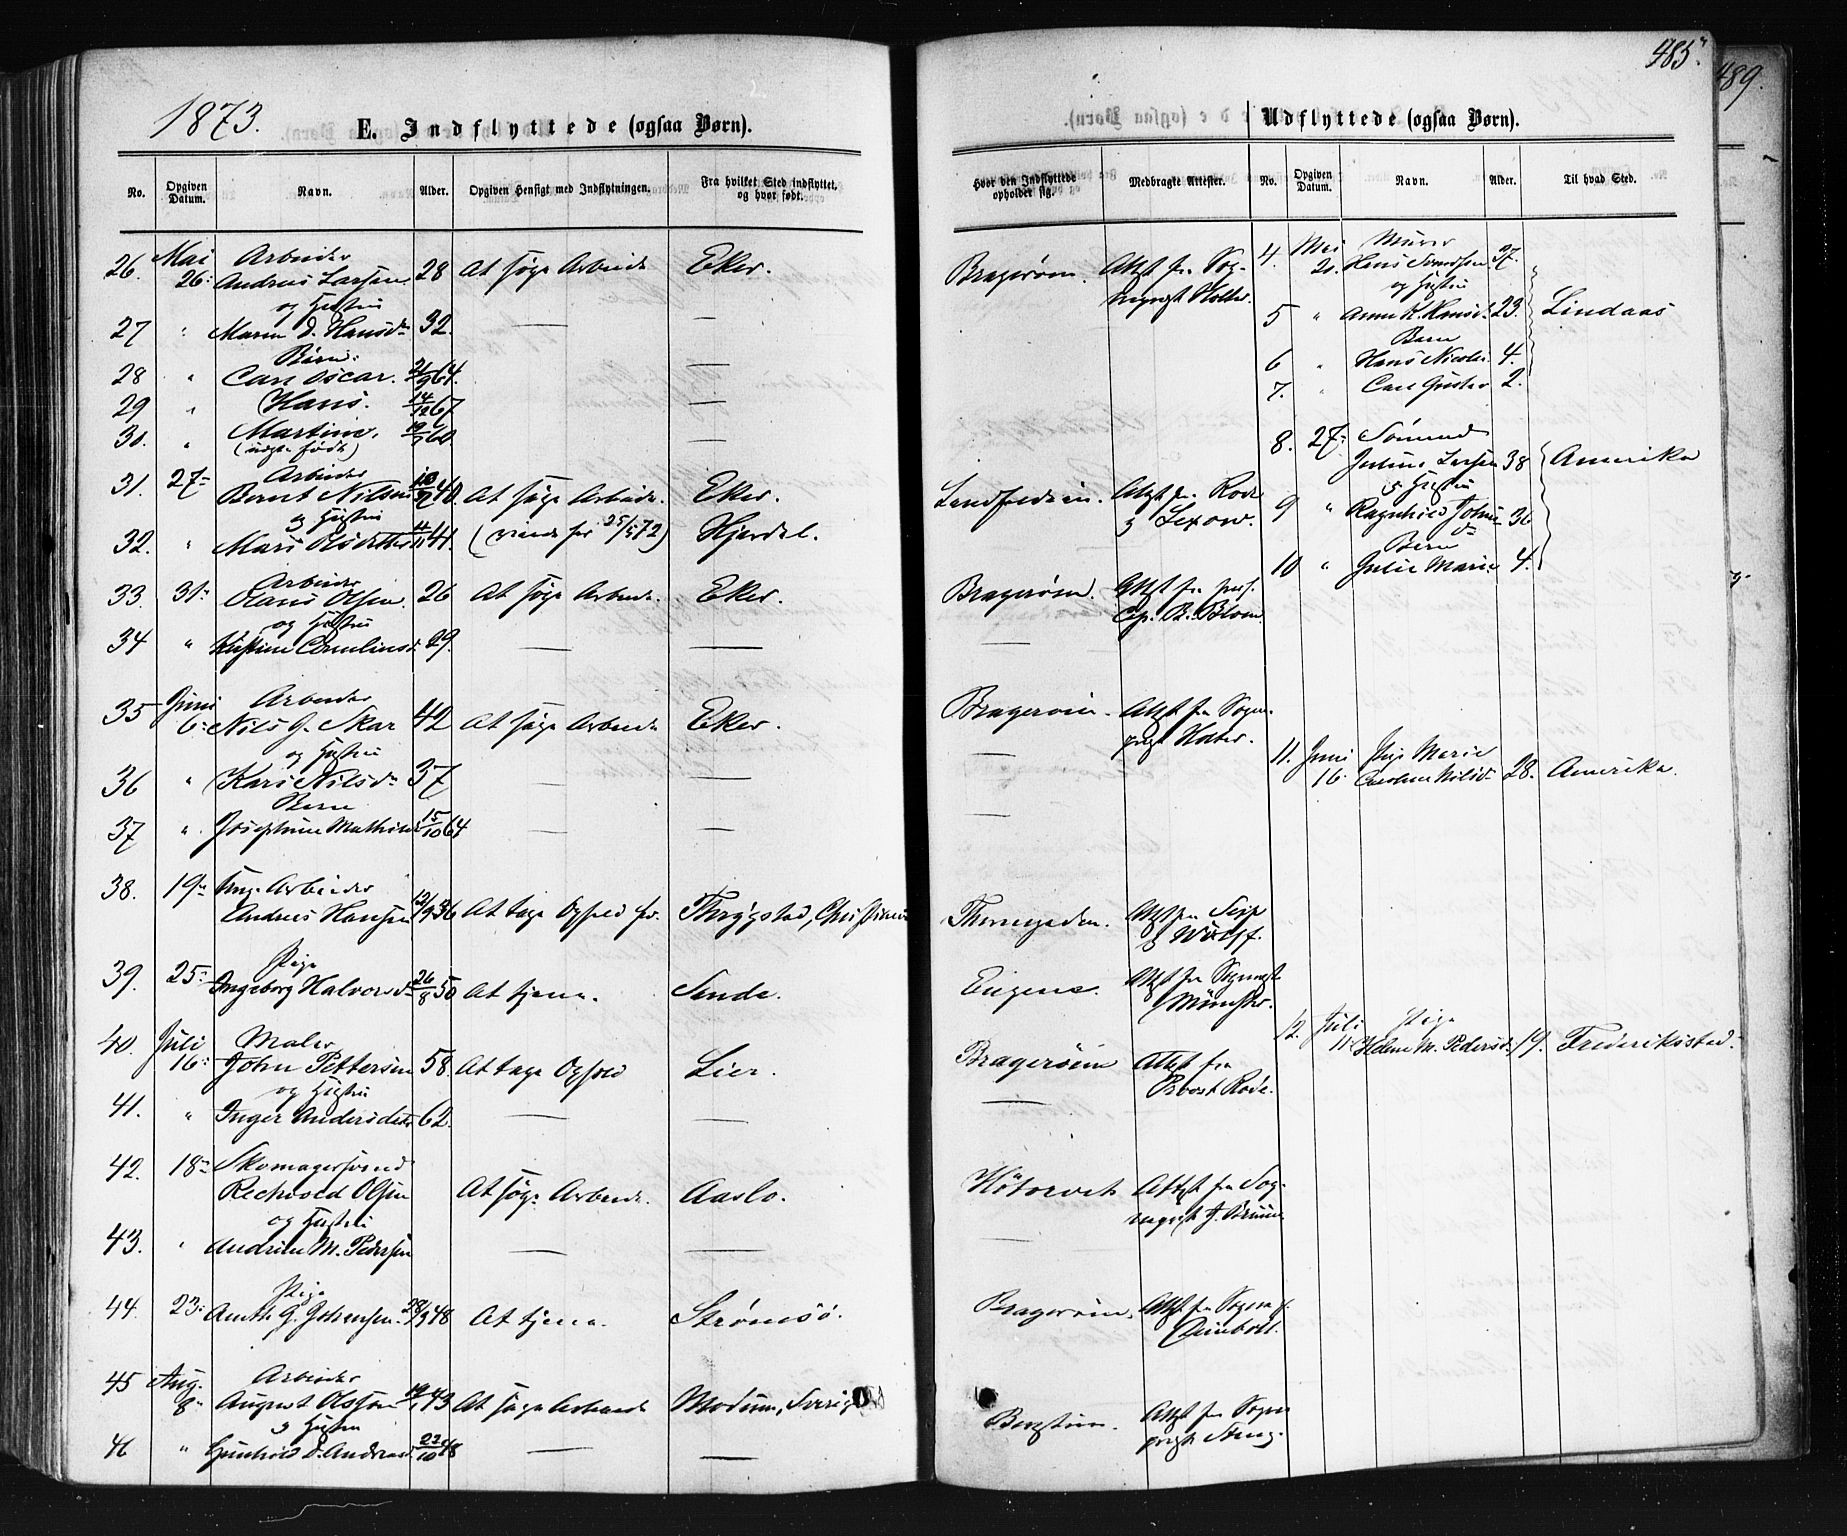 485.
489.
1873.
E. Indflyttede (ogsaa Børn).
Udflyttede (ogsaa Børn).
No. Opgiven Datum. Navn. Alder. Opgiven Hensigt med Indflytningen. Fra hvilket Sted indflyttet, og hvor født.
Hvor den Indflyttede opholder sig. Medbragte Attester. No. Opgiven Datum. Navn. Alder. Til hvad Sted.
26. Mai 26: Arbeider
Andreas Larsen 28 At søge Arbeide Eker. Bragerøen Attst fra Sog-
og Hustru
nepræst Holter.
27 " Maren D. Hansd. 32. — —
Børn:
28 " Carl Oscar. 64. —
29 " Hans. 14/12 67 —
30. " Martine. 60 —
(født)
31. 27 Arbeider
Bernt Nilsen 40. At søge Arbeide. Eker. Attst fra Rode
og Hustru
& Lexow.
32. " Mari Olsdatter 41. ( 25/5 72) Hjerdal.
33. 31 Arbeider
Olaus Olsen. 26 At søge Arbeide. Eker. Bragerøen. Attst fra pers.
og Hustru
Cap. B. Blom
34 " Corneliusd. 29. — — —
35 Juni 6: Arbeider
Nils G. Skar 42 At søge Arbeide Eker. Bragerøen. Attst fra Sogne-
og Hustru
præst Holter.
36 " Kari Nilsd. 37 — — —
Børn
37 " Josephine Mathilde 15/10 64 — —
38. 19 Ung. Arbeider
Andreas Hansen 12/9 36 At tage Ophold her. Thrygstad, Christiania Attst fra
Wulff.
39. 25 Pige
Ingeborg Halvorsd. 26/8 50 At tjene. Sende. Eugene. Attst fra Sognepst
Münster.
40. Juli 16: Maler
John Pettersen 58. At tage Ophold Lier. Bragerøen Attest fra
og Hustru
Provst Rode.
41. " Inger Andersdatr 62. — — —
42. 18 Skomagersvend
Olsen At søge Arbeide. Aaslo. Høtorvet Attest fra Sog-
og Hustru
nepræst J.
43. " Andrine M. Pedersen — — —
44. 23: Pige
G. Johansen. 28/9 48 At tjene. Strømsö. Bragerøen. Attst fra Sognep.
45 Aug. 8 Arbeider
August Olsson 43 At søge Arbeide Modum, Sverig Attst fra Sogne-
og Hustru
præst
46 " Gunhild D. Andreasd. 22/10 48 — —
4. Mai 20. Murer
Hans Svendsen 37.
og Hustru
5 " Anne K. Hansd. 23. Lindaas
Børn
6 " Hans Nicolai 4.
7. " Carl Gustav 2.
8. 27 Sömand
Julius Larsen 38 Amerika
og Hustru
9 " Ragnhild Johns- 36
d.
Børn
10 " Julie Marie 4.
11. Juni 16. Pige Marie
Caroline Nilsd. 28. Amerika.
12. Juli 11. Pige
Helene M. Pedersd. 19. Frederikstad.